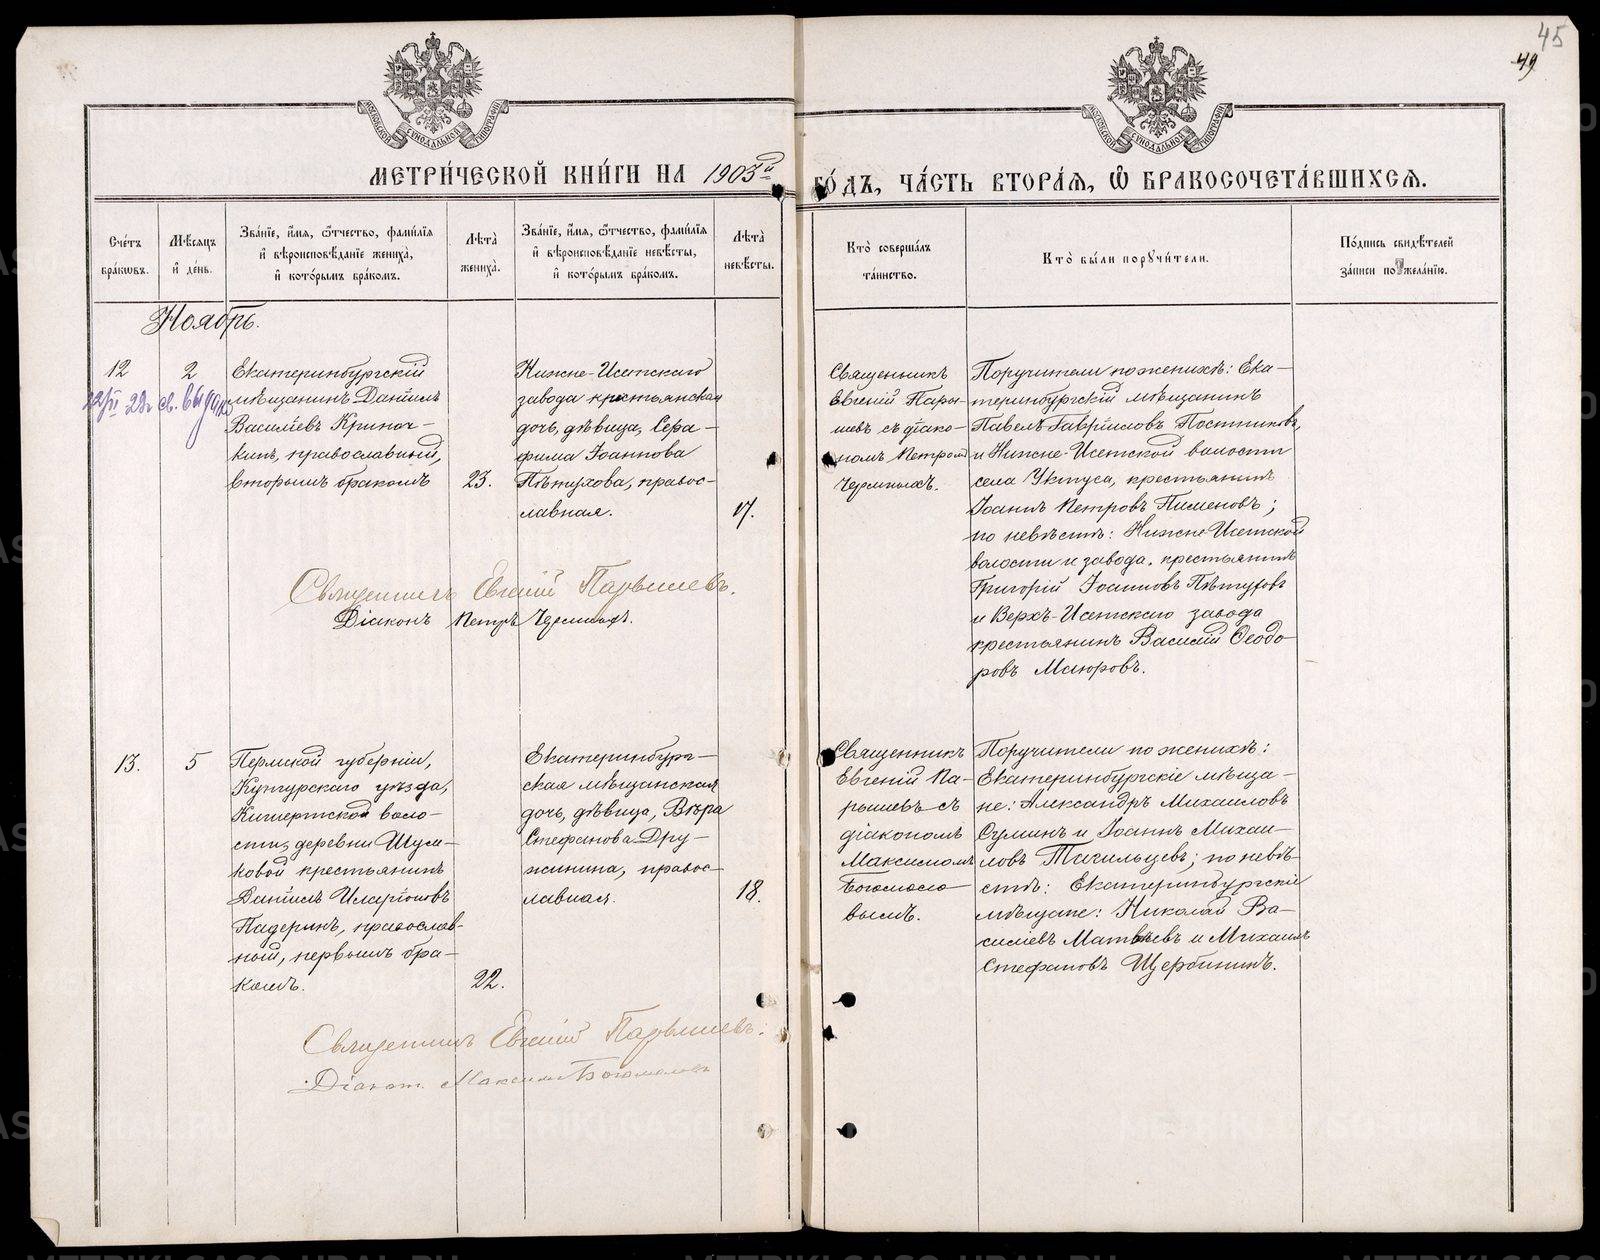 45
49
МЕТРИ́ЧЕСКОЙ КНИ́ГИ НА 1903й ГО́ДЪ, ЧА́СТЬ ВТОРА́Я, Ѿ БРАКОСОЧЕТА́ВШИХСЯ.
Сче́тъ бра́ковъ.
Мѣ́сяцъ и҆ де́нь.
Зва́нїе, и҆́мя, ѻ҆́тчество, фами́лїя и҆ вѣроисповѣ́данїе жениха̀, и҆ кото́рымъ бра́комъ.
Лѣ̑та жениха̀.
Зва́нїе, и҆́мя, ѻ҆́тчество, фами́лїя и҆ вѣроисповѣ́данїе невѣ́сты, и҆ кото́рымъ бра́комъ.
Лѣ̑та невѣ́сты.
Кто̀ соверша́лъ та́инство.
Кто̀ бы́ли порꙋчи́тели.
По́дпись свидѣ́телей за́писи по жела́нїю.
Ноябрь.
12
2
св. выдано
Екатеринбургскій
мѣщанинъ Даніилъ
Василіевъ Кривоч-
кинъ, православный,
вторымъ бракомъ
23.
Нижне-Исетскаго
завода крестьянская
дочь, дѣвица, Сера-
фима Іоаннова
Пѣтухова, правос-
лавная.
17.
Священникъ
Евгеній Пары-
шевъ съ діако-
номъ Петромъ
Чермныхъ.
Поручители по женихѣ: Ека-
теринбургскій мѣщанинъ
Павелъ Гавріиловъ Постниковъ,
и Нижне-Исетской волости
села Уктуса, крестьянинъ
Іоаннъ Петровъ Пименовъ;
по невѣстѣ: Нижне-Исетской
волости и завода, крестьянинъ
Григорій Іоанновъ Пѣтуховъ
и Верхъ-Исетскаго завода
крестьянинъ Василій Ѳеодо-
ровъ Маюровъ.
Священникъ Евгеній Парышевъ.
Діаконъ Петръ Чермныхъ.
13.
5
Пермской губерніи,
Кунгурскаго уѣзда,
Кишертской воло-
сти, деревни Шум-
ковой крестьянинъ
Даніилъ Иларіоновъ
Падеринъ, православ-
ный, первымъ бра-
комъ.
22.
Екатеринбург-
ская мѣщанская
дочь, дѣвица, Вѣра
Стефанова Дру-
жинина, правос-
лавная.
18.
Священникъ
Евгеній Па-
рышевъ съ
діакономъ
Максимомъ
Богомоло-
вымъ.
Поручители по женихѣ:
Екатеринбургскіе мѣща-
не: Александръ Михаиловъ
Суминъ и Іоаннъ Михаи-
ловъ Тагильцевъ; по невѣ-
стѣ: Екатеринбургскіе
мѣщане: Николай Ва-
силіевъ Матвѣевъ и Михаилъ
Стефановъ Щербининъ.
Священникъ Евгеній Парышевъ.
Діакон. Максимъ Богомоловъ